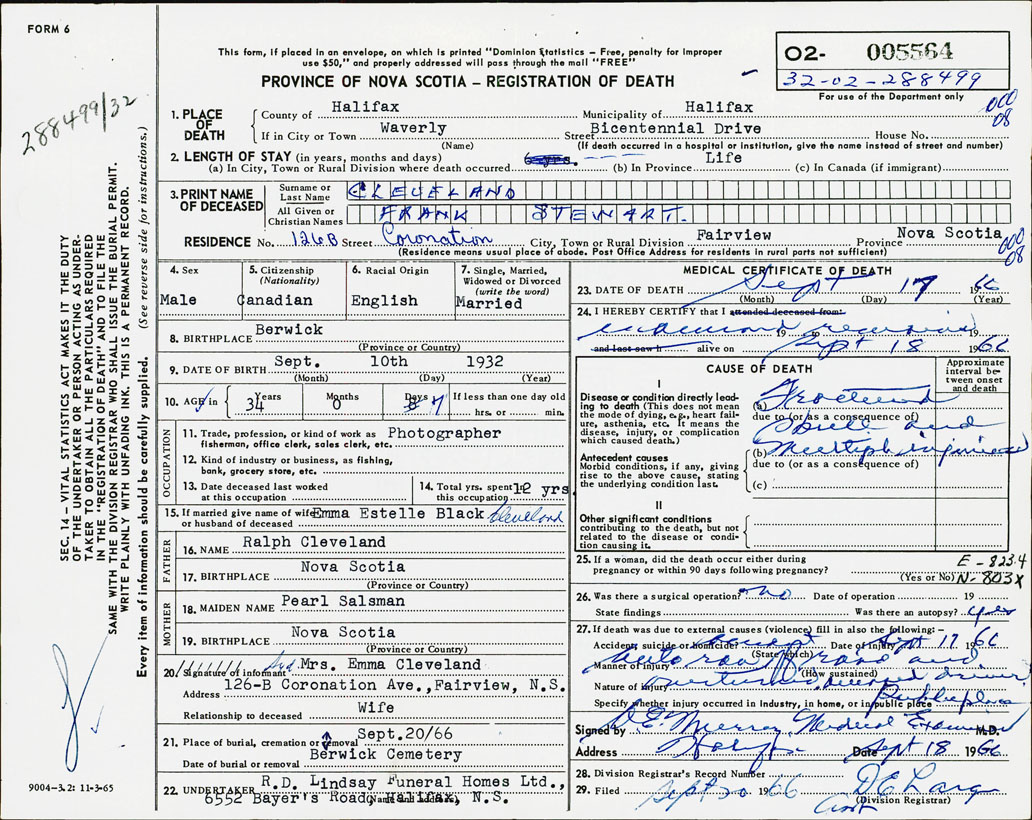 FORM 6
This form, if placed in an envelope, on which is printed "Dominion Statistics – Free, penalty for improper
use $50," and properly addressed will pass through the mail "FREE"
PROVINCE OF NOVA SCOTIA – REGISTRATION OF DEATH
02- 005564
32-02-288499
For use of the Department only
288499/32
000
08
SEC. 14 – VITAL STATISTICS ACT MAKES IT THE DUTY
OF THE UNDERTAKER OR PERSON ACTING AS UNDER-
TAKER TO OBTAIN ALL THE PARTICULARS REQUIRED
IN THE "REGISTRATION OF DEATH" AND TO FILE THE
SAME WITH THE DIVISION REGISTRAR WHO SHALL ISSUE THE BURIAL PERMIT.
WRITE PLAINLY WITH UNFADING INK. THIS IS A PERMANENT RECORD.
Every item of information should be carefully supplied. (See reverse side for instructions.)
1. PLACE OF DEATH
County of Halifax Municipality of Halifax
If in City or Town Waverly Street Bicentennial Drive House No.
(Name) (If death occurred in a hospital or institution, give the name instead of street and number)
2. LENGTH OF STAY (in years, months and days)
(a) In City, Town or Rural Division where death occurred 6 yrs. (b) In Province Life (c) In Canada (if immigrant)
3. PRINT NAME OF DECEASED
Surname or Last Name CLEVELAND
All Given or Christian Names FRANK STEWART.
RESIDENCE No. 126B Street Coronation City, Town or Rural Division Fairview Province Nova Scotia
(Residence means usual place of abode. Post Office Address for residents in rural parts not sufficient)
000
08
4. Sex
Male
5. Citizenship
(Nationality)
Canadian
6. Racial Origin
English
7. Single, Married,
Widowed or Divorced
(write the word)
Married
8. BIRTHPLACE Berwick
(Province or Country)
9. DATE OF BIRTH Sept. 10th 1932
(Month) (Day) (Year)
10. AGE in 34 Years 0 Months 7 Days If less than one day old
hrs. or min.
OCCUPATION
11. Trade, profession, or kind of work as Photographer
fisherman, office clerk, sales clerk, etc.
12. Kind of industry or business, as fishing,
bank, grocery store, etc.
13. Date deceased last worked
at this occupation
14. Total yrs. spent in
this occupation 12 yrs
15. If married give name of wife Emma Estelle Black Cleveland
or husband of deceased
FATHER
16. NAME Ralph Cleveland
17. BIRTHPLACE Nova Scotia
(Province or Country)
MOTHER
18. MAIDEN NAME Pearl Salsman
19. BIRTHPLACE Nova Scotia
(Province or Country)
20. Signature of informant Sgd. Mrs. Emma Cleveland
Address 126-B Coronation Ave., Fairview, N.S.
Relationship to deceased Wife
21. Place of burial, cremation or removal Sept.20/66
Date of burial or removal Berwick Cemetery
22. UNDERTAKER R.D. Lindsay Funeral Homes Ltd.,
6552 Bayer's Road, Halifax, N.S.
(Name and address)
9004-3.2: 11-3-65
MEDICAL CERTIFICATE OF DEATH
23. DATE OF DEATH Sept 17 1966
(Month) (Day) (Year)
24. I HEREBY CERTIFY that I attended deceased from:
examined remains
19 19
and last saw h alive on Sept 18 1966
CAUSE OF DEATH
Approximate interval between onset and death
I
Disease or condition directly lead-
ing to death (This does not mean
the mode of dying, e.g., heart fail-
ure, asthenia, etc. It means the
disease, injury, or complication
which caused death.)
(a) Fractured
due to (or as a consequence of)
Skull and
Antecedent causes
Morbid conditions, if any, giving
rise to the above cause, stating
the underlying condition last.
(b) Multiple injuries
due to (or as a consequence of)
(c)
II
Other significant conditions
contributing to the death, but not
related to the disease or condi-
tion causing it.
25. If a woman, did the death occur either during
pregnancy or within 90 days following pregnancy?
(Yes or No)
E-823.4
N-803X
26. Was there a surgical operation? no Date of operation 19
State findings Was there an autopsy? yes
27. If death was due to external causes (violence) fill in also the following: –
Accident, suicide or homicide? accident Date of injury Sept 17 1966
(State which)
Manner of injury auto ran off road and
(How sustained)
Nature of injury overturned deceased driver
Specify whether injury occurred in Industry, in home, or in public place Public place
Signed by D E Murray Medical Examiner M.D.
Address Halifax Date Sept 18 1966
28. Division Registrar's Record Number
29. Filed Sept 20 1966
(Division Registrar)